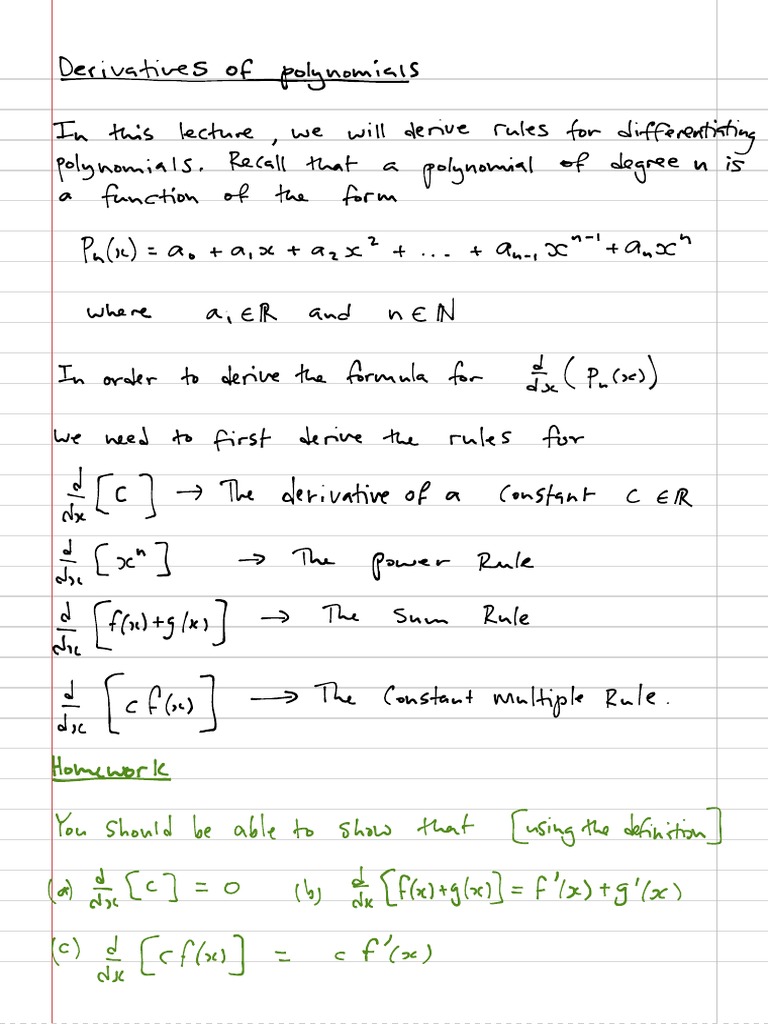 Derivatives of polynomials
In this lecture, we will derive rules for differentiating
polynomials. Recall that a polynomial of degree n is
a function of the form
Pₙ(x) = a₀ + a₁x + a₂x² + ... + aₙ₋₁xⁿ⁻¹ + aₙxⁿ
where aᵢ ∈ ℝ and n ∈ ℕ
In order to derive the formula for d/dx (Pₙ(x))
we need to first derive the rules for
d/dx [c] → The derivative of a constant c ∈ ℝ
d/dx [xⁿ] → The power Rule
d/dx [f(x)+g(x)] → The Sum Rule
d/dx [c f(x)] → The Constant Multiple Rule.
Homework
You should be able to show that [using the definition]
(a) d/dx [c] = 0 (b) d/dx [f(x)+g(x)] = f'(x)+g'(x)
(c) d/dx [c f(x)] = c f'(x)